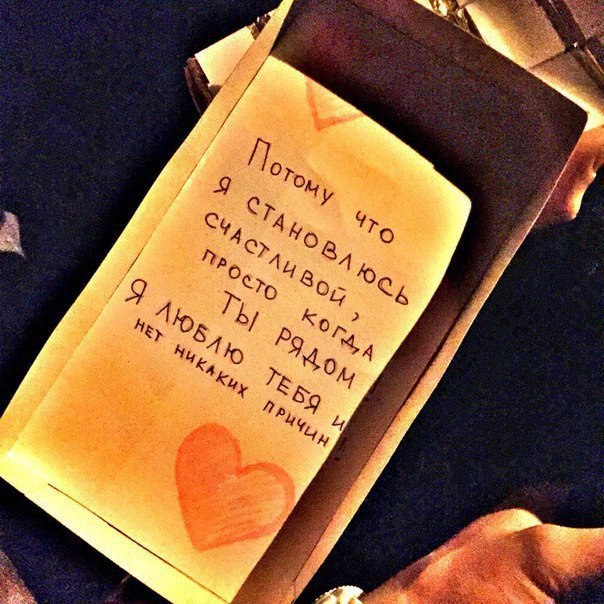 Потому что
я становлюсь
счастливой,
просто когда
ты рядом.
Я люблю тебя и
нет никаких причин!